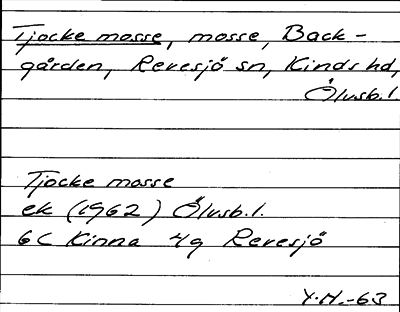 Tjocke mosse, mosse, Back-
gården, Revesjö sn, Kinds hd,
Älvsb. l.
Tjocke mosse
ek (1962) Älvsb. l.
6C Kinna 4g Revesjö
Y.H.-63